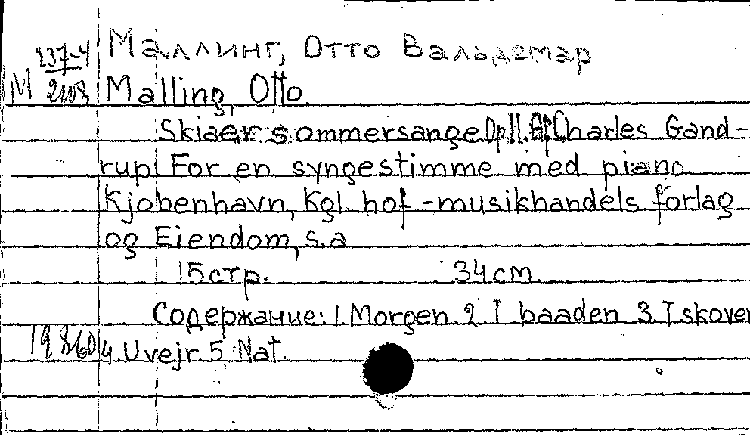 237-4 Маллинг, Отто Вальдемар
M 2403 Malling, Otto
Skiaer sommersange Op 11. Charles Gand-
rup. For en syngestimme med piano
Kjobenhavn, Kgl. hof-musikhandels forlag
og Eiendom, s.a
15 стр. 34 cm
Содержание: 1. Morgen 2 I baaden 3. I skoven
4 Uvejr 5 Nat.